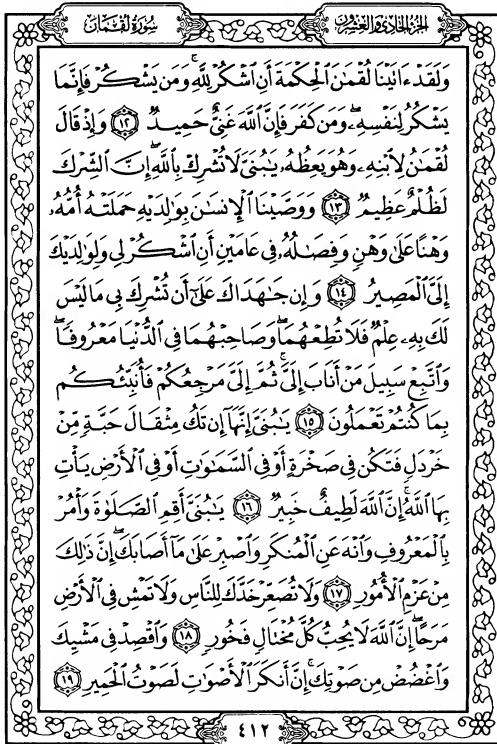 سُورَةُ لُقْمَانَ
الجزء الحادي والعشرون
وَلَقَدْ ءَاتَيْنَا لُقْمَٰنَ ٱلْحِكْمَةَ أَنِ ٱشْكُرْ لِلَّهِ ۚ وَمَن يَشْكُرْ فَإِنَّمَا
يَشْكُرُ لِنَفْسِهِۦ ۖ وَمَن كَفَرَ فَإِنَّ ٱللَّهَ غَنِىٌّ حَمِيدٌ ١٢ وَإِذْ قَالَ
لُقْمَٰنُ لِٱبْنِهِۦ وَهُوَ يَعِظُهُۥ يَٰبُنَىَّ لَا تُشْرِكْ بِٱللَّهِ ۖ إِنَّ ٱلشِّرْكَ
لَظُلْمٌ عَظِيمٌ ١٣ وَوَصَّيْنَا ٱلْإِنسَٰنَ بِوَٰلِدَيْهِ حَمَلَتْهُ أُمُّهُۥ
وَهْنًا عَلَىٰ وَهْنٍ وَفِصَٰلُهُۥ فِى عَامَيْنِ أَنِ ٱشْكُرْ لِى وَلِوَٰلِدَيْكَ
إِلَىَّ ٱلْمَصِيرُ ١٤ وَإِن جَٰهَدَاكَ عَلَىٰٓ أَن تُشْرِكَ بِى مَا لَيْسَ
لَكَ بِهِۦ عِلْمٌ فَلَا تُطِعْهُمَا ۖ وَصَاحِبْهُمَا فِى ٱلدُّنْيَا مَعْرُوفًا ۖ
وَٱتَّبِعْ سَبِيلَ مَنْ أَنَابَ إِلَىَّ ۚ ثُمَّ إِلَىَّ مَرْجِعُكُمْ فَأُنَبِّئُكُم
بِمَا كُنتُمْ تَعْمَلُونَ ١٥ يَٰبُنَىَّ إِنَّهَآ إِن تَكُ مِثْقَالَ حَبَّةٍ مِّنْ
خَرْدَلٍ فَتَكُن فِى صَخْرَةٍ أَوْ فِى ٱلسَّمَٰوَٰتِ أَوْ فِى ٱلْأَرْضِ يَأْتِ
بِهَا ٱللَّهُ ۚ إِنَّ ٱللَّهَ لَطِيفٌ خَبِيرٌ ١٦ يَٰبُنَىَّ أَقِمِ ٱلصَّلَوٰةَ وَأْمُرْ
بِٱلْمَعْرُوفِ وَٱنْهَ عَنِ ٱلْمُنكَرِ وَٱصْبِرْ عَلَىٰ مَآ أَصَابَكَ ۖ إِنَّ ذَٰلِكَ
مِنْ عَزْمِ ٱلْأُمُورِ ١٧ وَلَا تُصَعِّرْ خَدَّكَ لِلنَّاسِ وَلَا تَمْشِ فِى ٱلْأَرْضِ
مَرَحًا ۖ إِنَّ ٱللَّهَ لَا يُحِبُّ كُلَّ مُخْتَالٍ فَخُورٍ ١٨ وَٱقْصِدْ فِى مَشْيِكَ
وَٱغْضُضْ مِن صَوْتِكَ ۚ إِنَّ أَنكَرَ ٱلْأَصْوَٰتِ لَصَوْتُ ٱلْحَمِيرِ ١٩
٤١٢